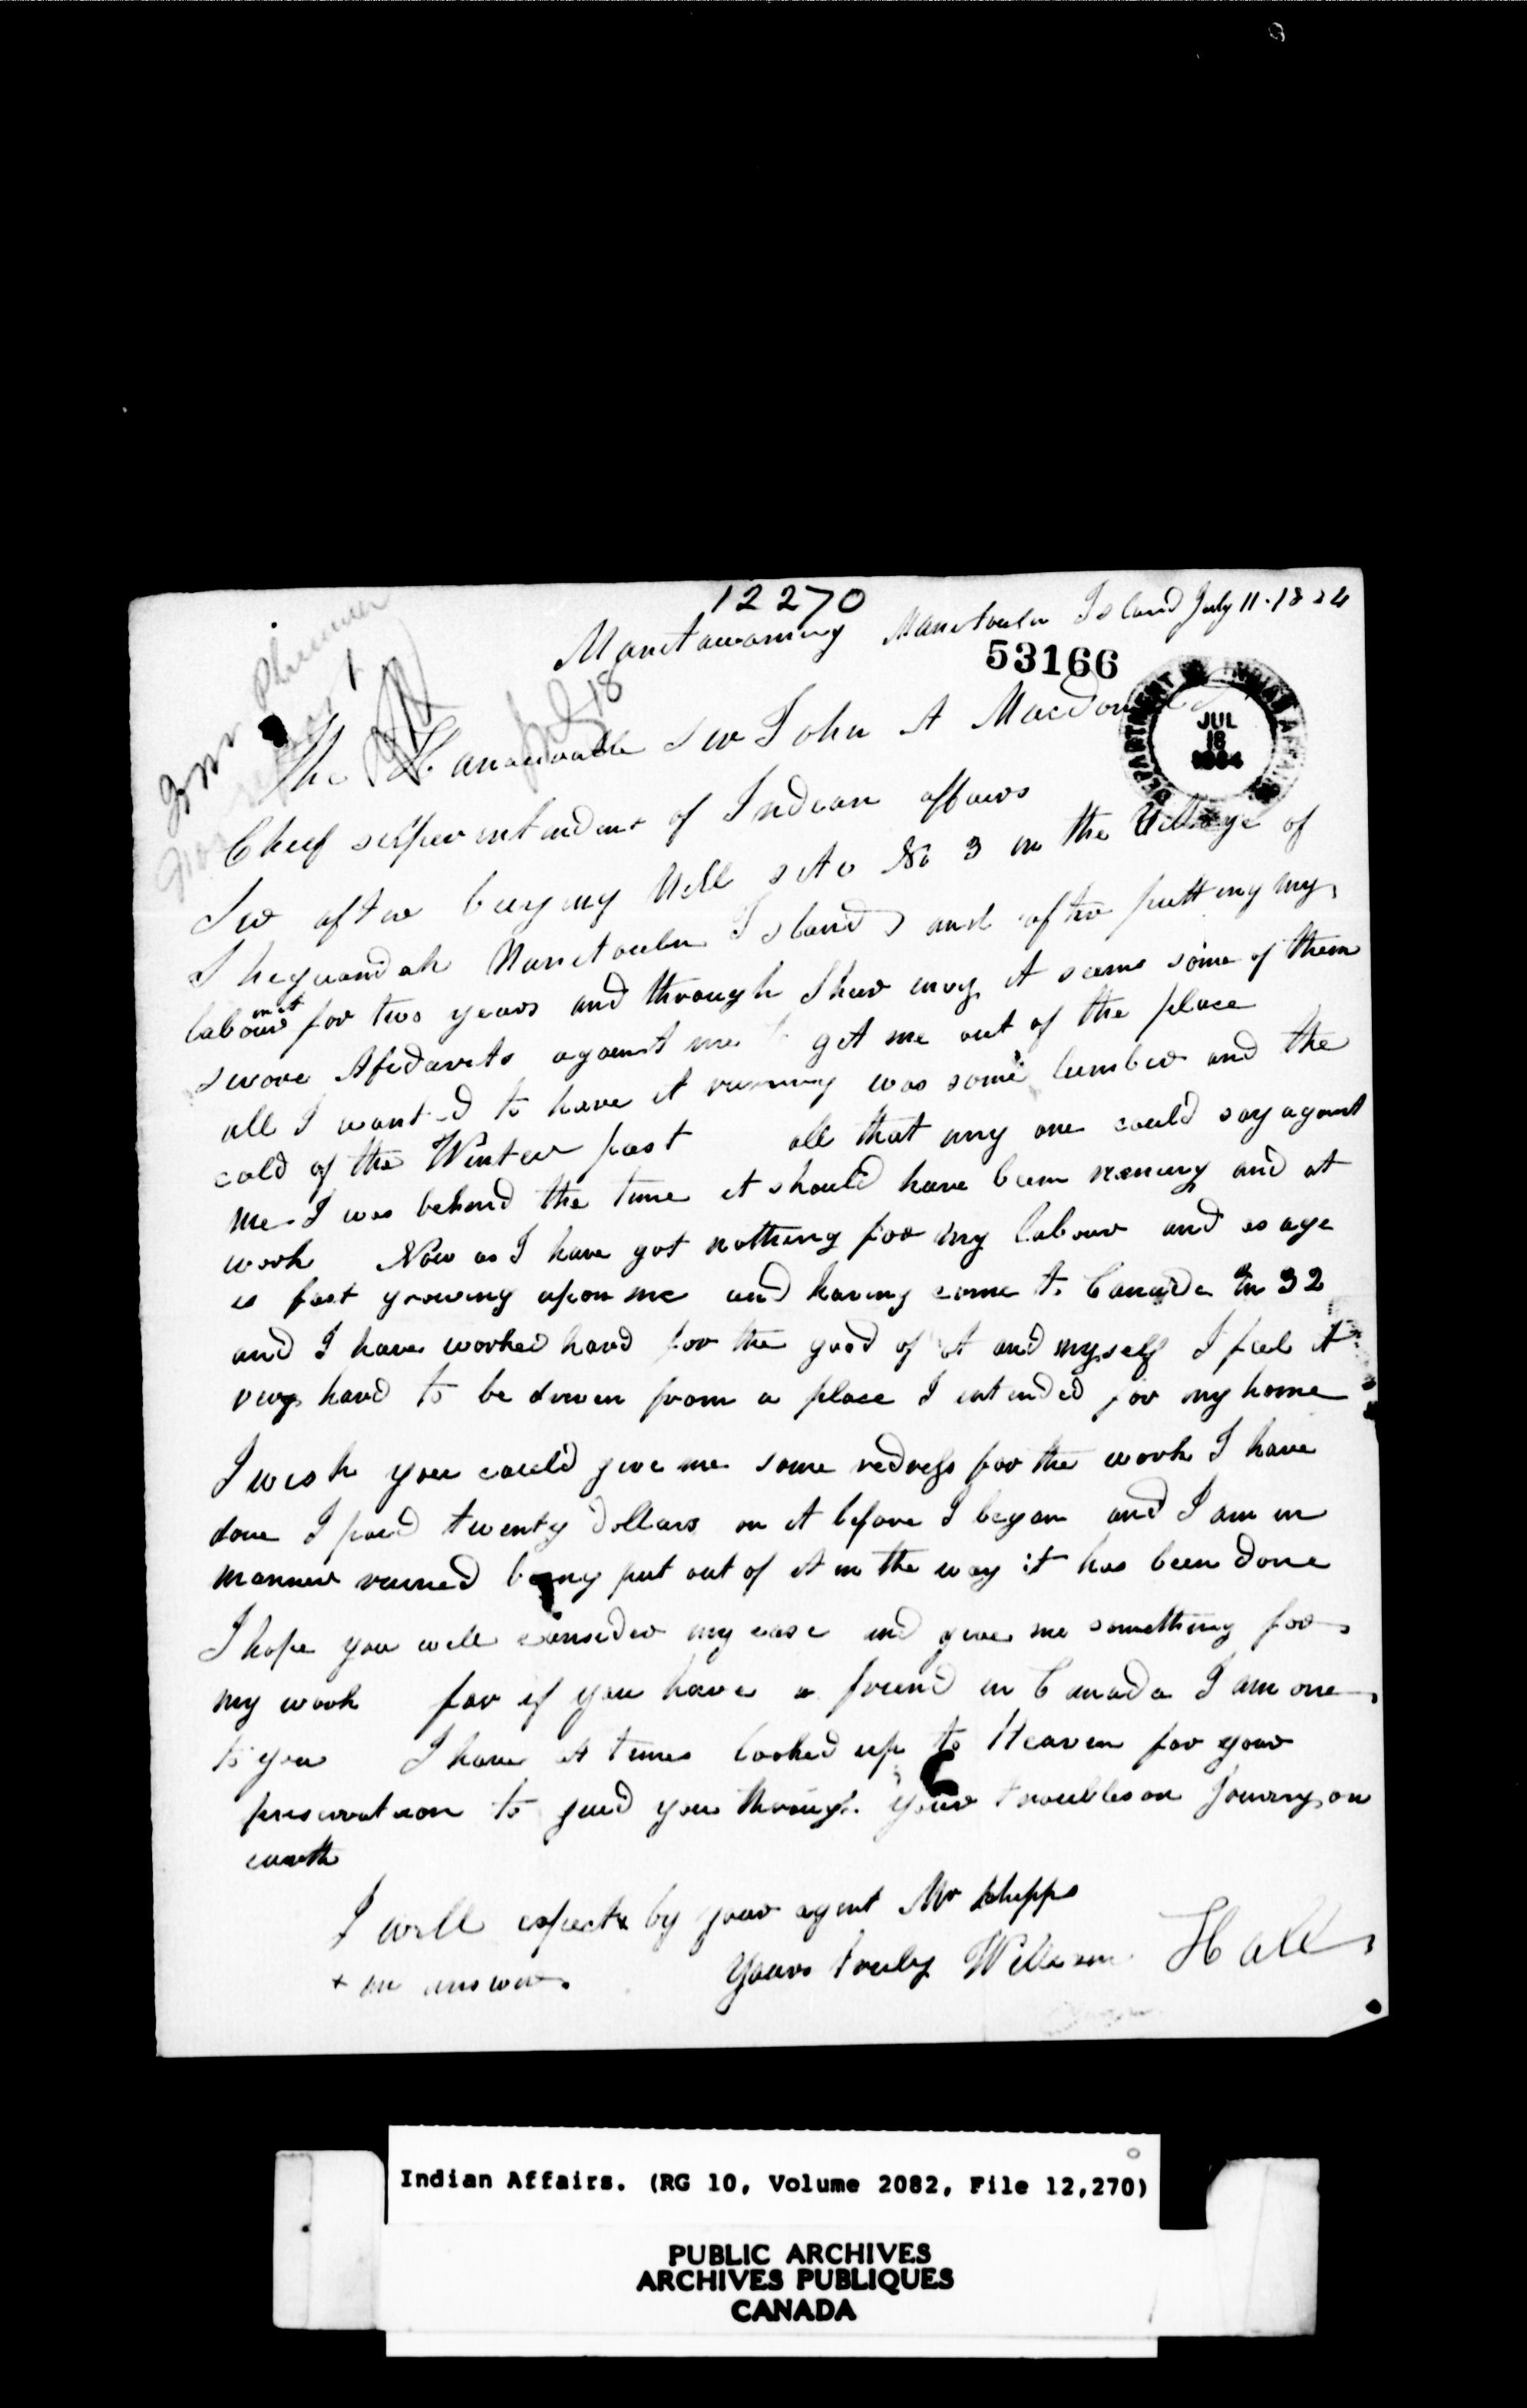 12270
Manitowaning Manitoulin Island July 11. 1884
53166
DEPARTMENT OF INDIAN AFFAIRS
JUL
18
1884
July 18
The Honourable Sir John A Macdonald
Chief superintendent of Indian affairs
Sir after buying Mill site No 3 in the Village of
Sheguandah Manitoulin Island and after putting my
labour in it for two years and through envy it seems some of them
swore Afedavits against me to get me out of the place
all I wanted to have it running was some lumber and the
cold of the Winter past all that any one could say against
me I was behind the time it should have been runing and at
work Now as I have got nothing for my labour and as age
is fast growing upon me and having come to Canada in 32
and I have worked hard for the good of it and myself I feel it
very hard to be driven from a place I intended for my home
I wish you could give me some redress for the work I have
done I paid twenty Dollars on it before I began and I am in
manner ruined being put out of it in the way it has been done
I hope you will consider my case and give me something for
my work for if you have a friend in Canada I am one
to you I have at times looked up to Heaven for your
preservation to guid you through your on
earth
I will expect x by your agent Mr phipps
x an answer. Yours truly William Hall
Indian Affairs. (RG 10, Volume 2082, File 12,270)
PUBLIC ARCHIVES
ARCHIVES PUBLIQUES
CANADA